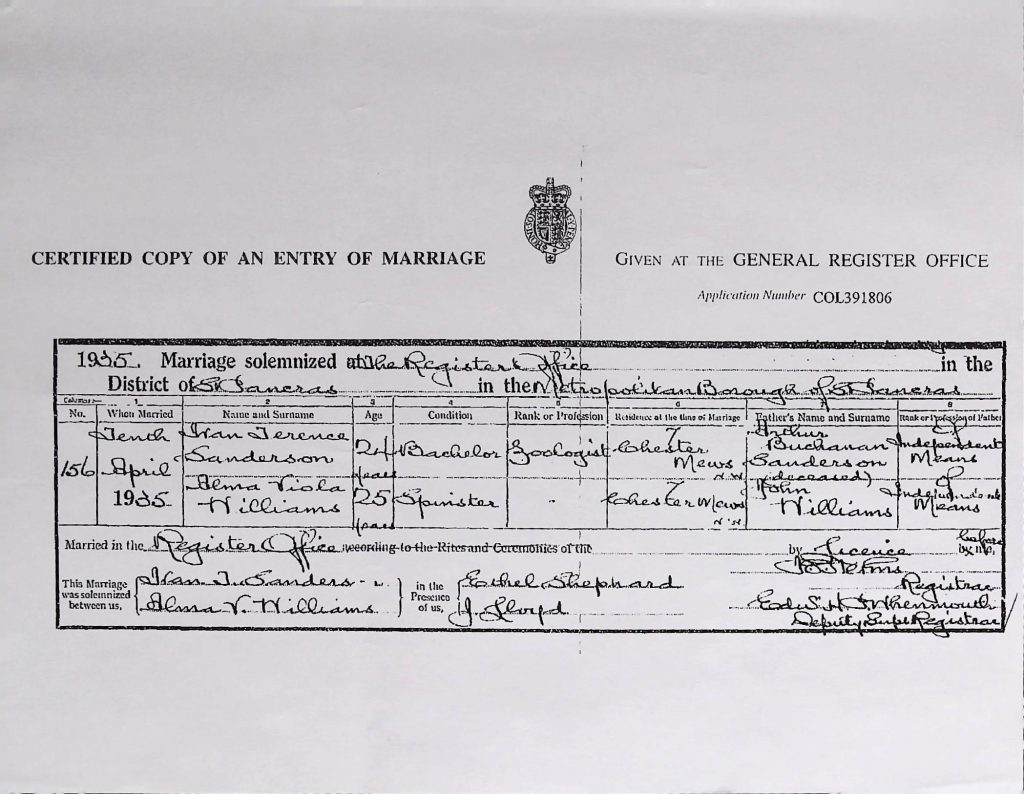 CERTIFIED COPY OF AN ENTRY OF MARRIAGE
GIVEN AT THE GENERAL REGISTER OFFICE
Application Number COL391806
1935. Marriage solemnized at The Register Office in the
District of St Pancras in the Metropolitan Borough of St Pancras
Columns:— 1 2 3 4 5 6 7 8
No. When Married Name and Surname Age Condition Rank or Profession Residence at the time of Marriage Father's Name and Surname Rank or Profession of Father
156 Tenth April 1935 Ivan Terence Sanderson 24 years Bachelor Zoologist 7 Chester Mews N.W. Arthur Buchanan Sanderson (deceased) Of Independent Means
Alma Viola Williams 25 years Spinster - 7 Chester Mews N.W. John Williams Of Independent Means
Married in the Register Office according to the Rites and Ceremonies of the by Licence before by me,
This Marriage was solemnized between us, Ivan T. Sanderson Alma V. Williams in the Presence of us, Ethel Shephard J. Lloyd
Registrar
Deputy Supt Registrar